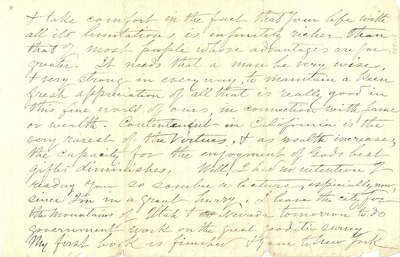 & take comfort in the fact that your life with
all its limitations is infinitely richer than
that of most people whose advantages are far
greater. It needs that a man be very wise,
& very strong in every way, to maintain a keen
fresh appreciation of all that is really good in
this fine world of ours, in connection with fame
or wealth. Contentment in California is the
very rarest of the virtues, & as wealth increases
the capacity for the enjoyment of Gods best
gifts diminishes. Well, I had no intention of
reading you so sombre a lecture, especially now,
since I'm in a great hurry. I leave the city for
the mountains of Utah & Nevada tomorrow to do
government work on the great geodetic survey
My first book is finished & gone to New York